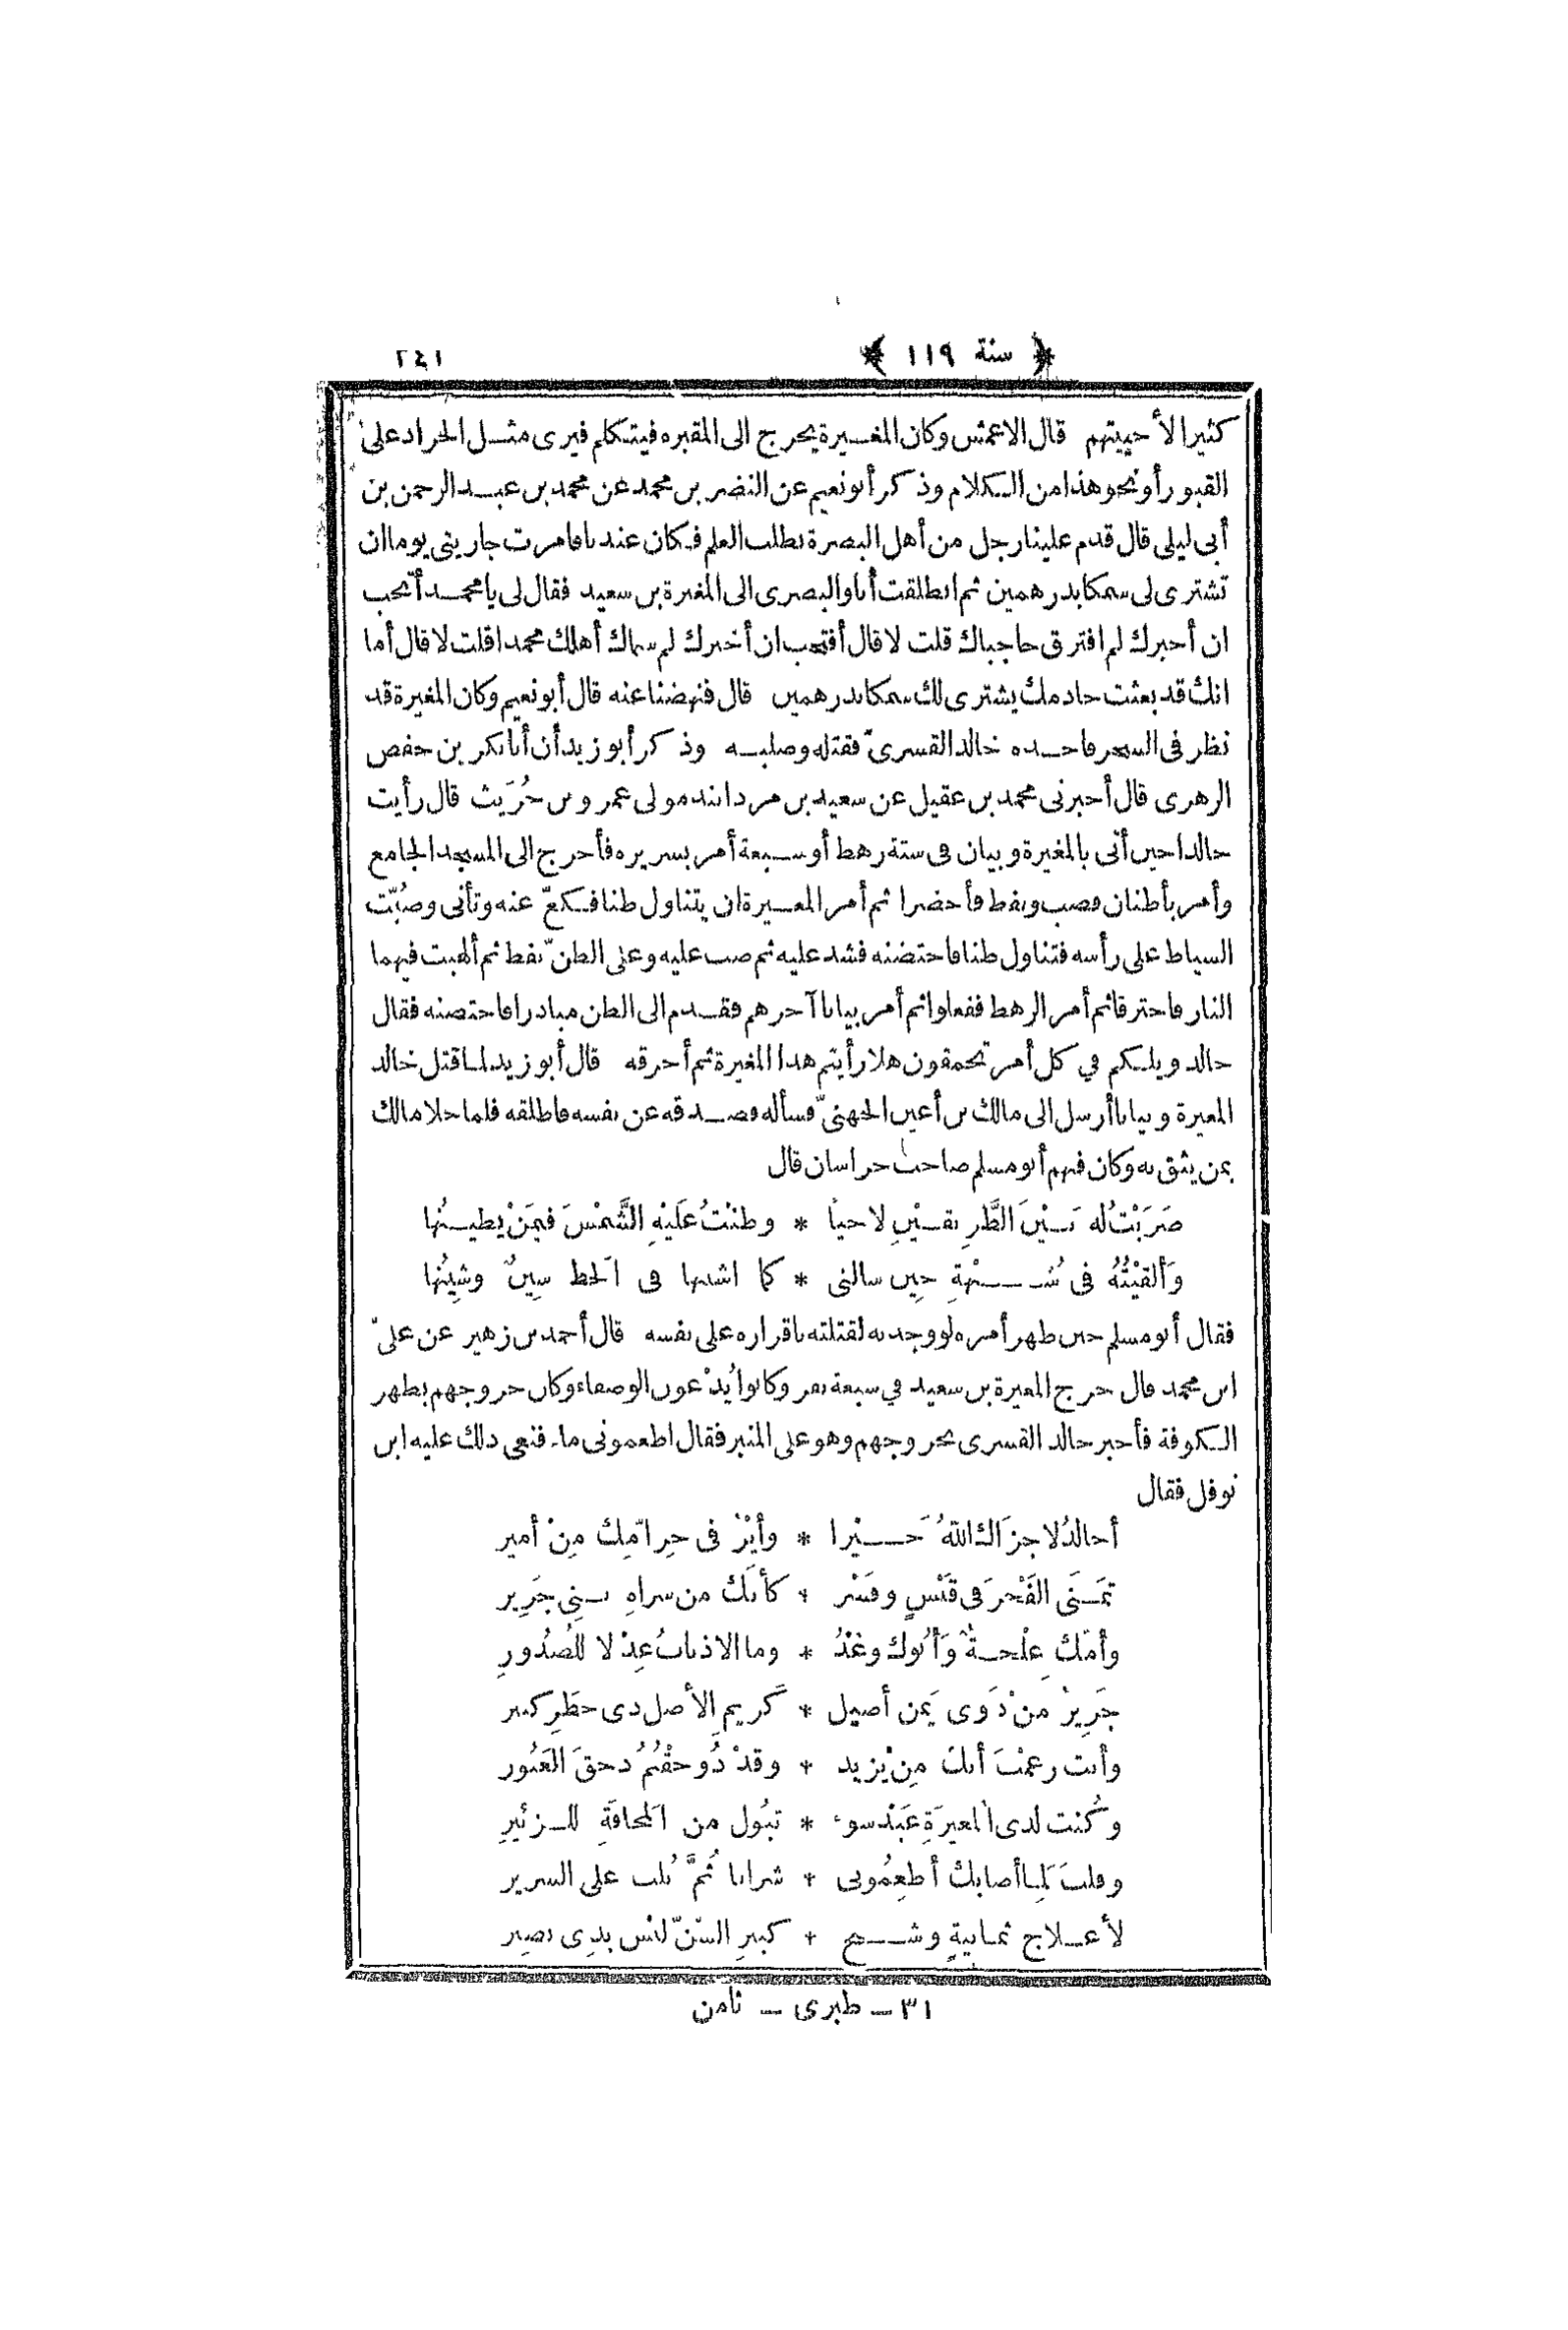 ﴿ سنة ١١٩ ﴾ ٢٤١
كثيرا لأحييتهم قال الاعمش وكان المغيرة يخرج الى المقبرة فيتكلم فيرى مثل الجراد على
القبور أو نحو هذا من الكلام وذكر أبو نعيم عن النضر بن محمد عن محمد بن عبد الرحمن بن
أبى ليلى قال قدم علينا رجل من أهل البصرة يطلب العلم فكان عندنا فامرت جاريتى يوما ان
تشترى لى سمكا بدرهمين ثم انطلقت أنا والبصرى الى المغيرة بن سعيد فقال لى يا محمد أتحب
ان أخبرك لم افترق حاجباك قلت لا قال أفتحب ان أخبرك لم سماك أهلك محمدا قلت لا قال أما
انك قد بعثت خادمك يشترى لك سمكا بدرهمين قال فنهضنا عنه قال أبو نعيم وكان المغيرة قد
نظر فى السحر فاخذه خالد القسرىّ فقتله وصلبه وذكر أبو زيد أن أبا بكر بن حفص
الزهرى قال أخبرنى محمد بن عقيل عن سعيد بن مردابند مولى عمرو بن حُرَيث قال رأيت
خالدا حين أتى بالمغيرة وبيان فى ستة رهط أو سبعة أمر بسريره فأخرج الى المسجد الجامع
وأمر بأطنان قصب ونفط فأحضرا ثم أمر المغيرة ان يتناول طنا فكعّ عنه وتأنى وصُبّت
السياط على رأسه فتناول طنا فاحتضنه فشد عليه ثم صب عليه وعلى الطنّ نفط ثم ألهبت فيهما
النار فاحترقا ثم أمر الرهط ففعلوا ثم أمر بيانا آخرهم فقدم الى الطن مبادرا فاحتضنه فقال
خالد ويلكم في كل أمر تحمقون هلا رأيتم هذا المغيرة ثم أحرقه قال أبو زيد لما قتل خالد
المغيرة وبيانا أرسل الى مالك بن أعين الجهنىّ فسأله فصدقه عن نفسه فاطلقه فلما خلا مالك
بمن يثق به وكان فيهم أبو مسلم صاحب خراسان قال
ضَرَبْتُ له بَيْنَ الطَّرِيقَيْنِ لاحبًا * وطنْتُ عَلَيْهِ الشَّمْسَ فيمَنْ يطينُها
وَألقيْتُهُ فى شُبْهَةِ حِين سالنى * كما اشتبها فى الخط سِينٌ وشِينُها
فقال أبو مسلم حين ظهر أمره لو وجدته لقتلته باقراره على نفسه قال أحمد بن زهير عن علىّ
ابن محمد قال خرج المغيرة بن سعيد في سبعة نفر وكانوا يُدْعون الوصفاء وكان خروجهم بظهر
الكوفة فأخبر خالد القسرى بخروجهم وهو على المنبر فقال اطعمونى ماء فنعى ذلك عليه ابن
نوفل فقال
أخالدُ لا جزَاك اللهُ خَيْرا * وأيْرٌ فى حِر امّك مِنْ أمير
تمَنَى الفَخْرَ فى قَيْسٍ وقسْر * كأنك من سراةِ بنِى جَرِير
وأمّك عِلْجةٌ وَأبُوك وغْدُ * وما الاذنابُ عِدْلا للصُدُورِ
جَرِيرٌ منْ ذَوى يَمن أصيل * كَريمِ الأصل ذى خطَرِ كبير
وأنت زعمْتَ أنكَ مِنْ يزيد * وقدْ دُوحقْتُمُ دحقَ العَبُور
وكُنت لدى المغيرَةِ عَبْدَ سوء * تبُول من المَخافَةِ للزئيرِ
وقلتَ لِما أصابك أطعِمُونى * شرابا ثُمَّ بُلت على السرير
لأعلاج ثمانيةٍ وشيخ * كبيرِ السّنّ ليْس بذِى نصِير
٣١ – طبرى – ثامن